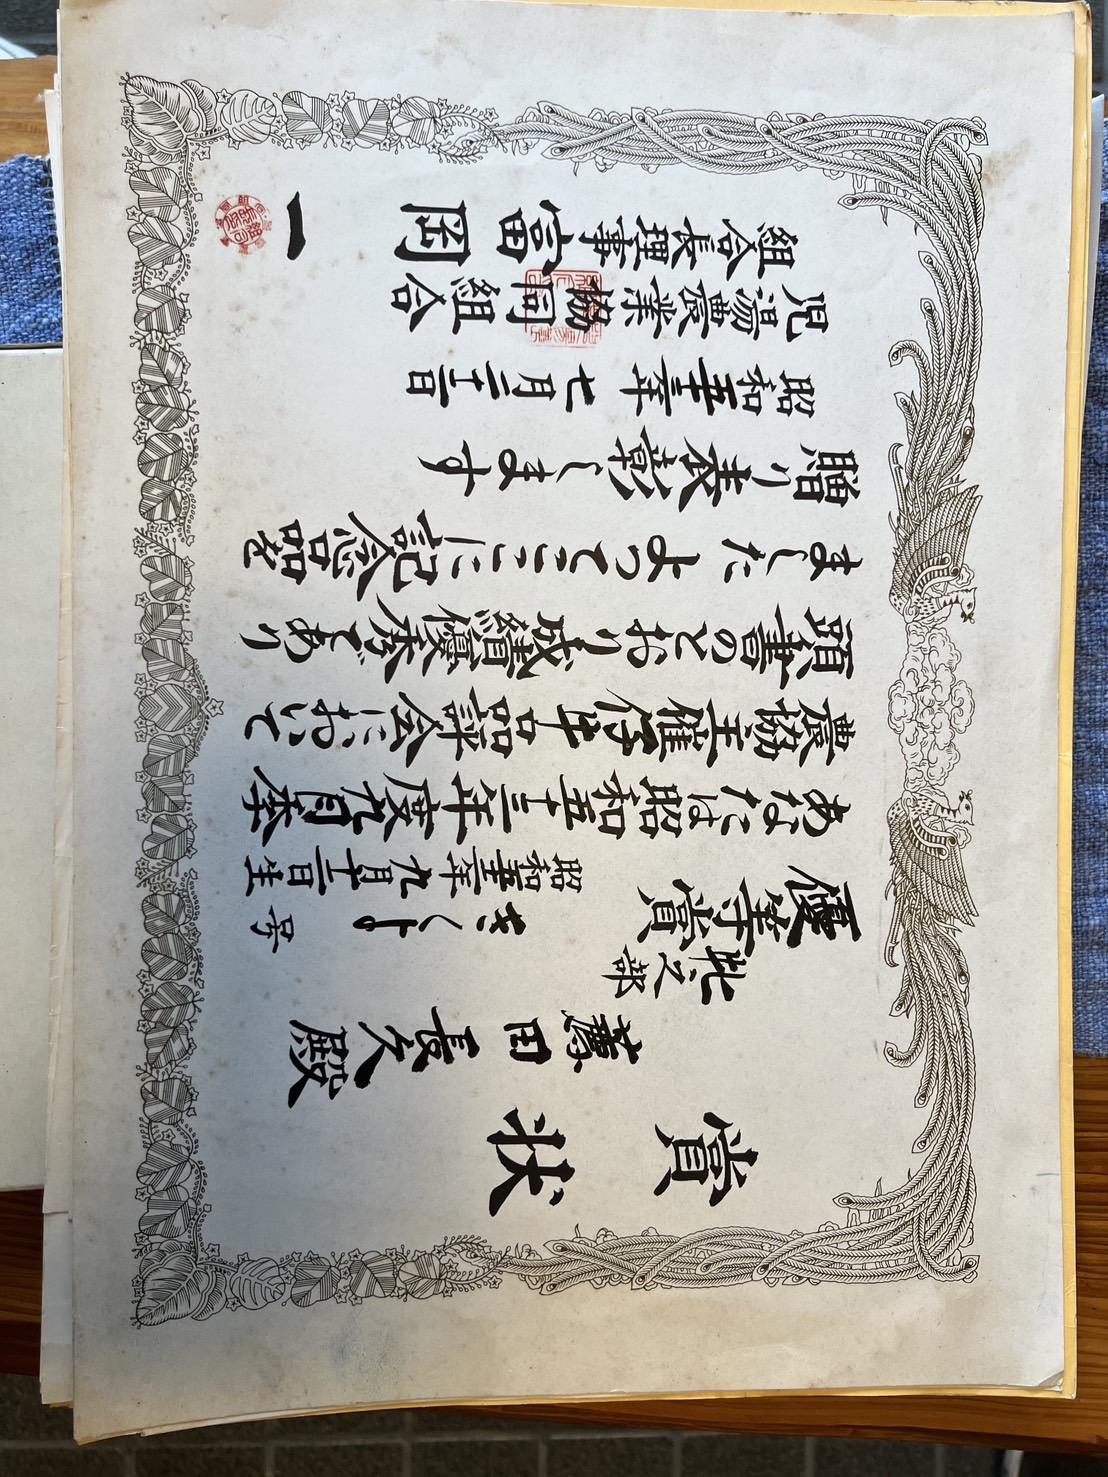 賞状
田長久殿
牝之部
優等賞
号
昭和五十二年九月十二日生
あなたは昭和五十三年度九月季
農協主催仔牛品評会において
頭書のとおり成績優秀であり
ましたよってここに記念品を
贈り表彰します
昭和五十三年七月二十二日
児湯農業協同組合
組合長理事 富岡 一